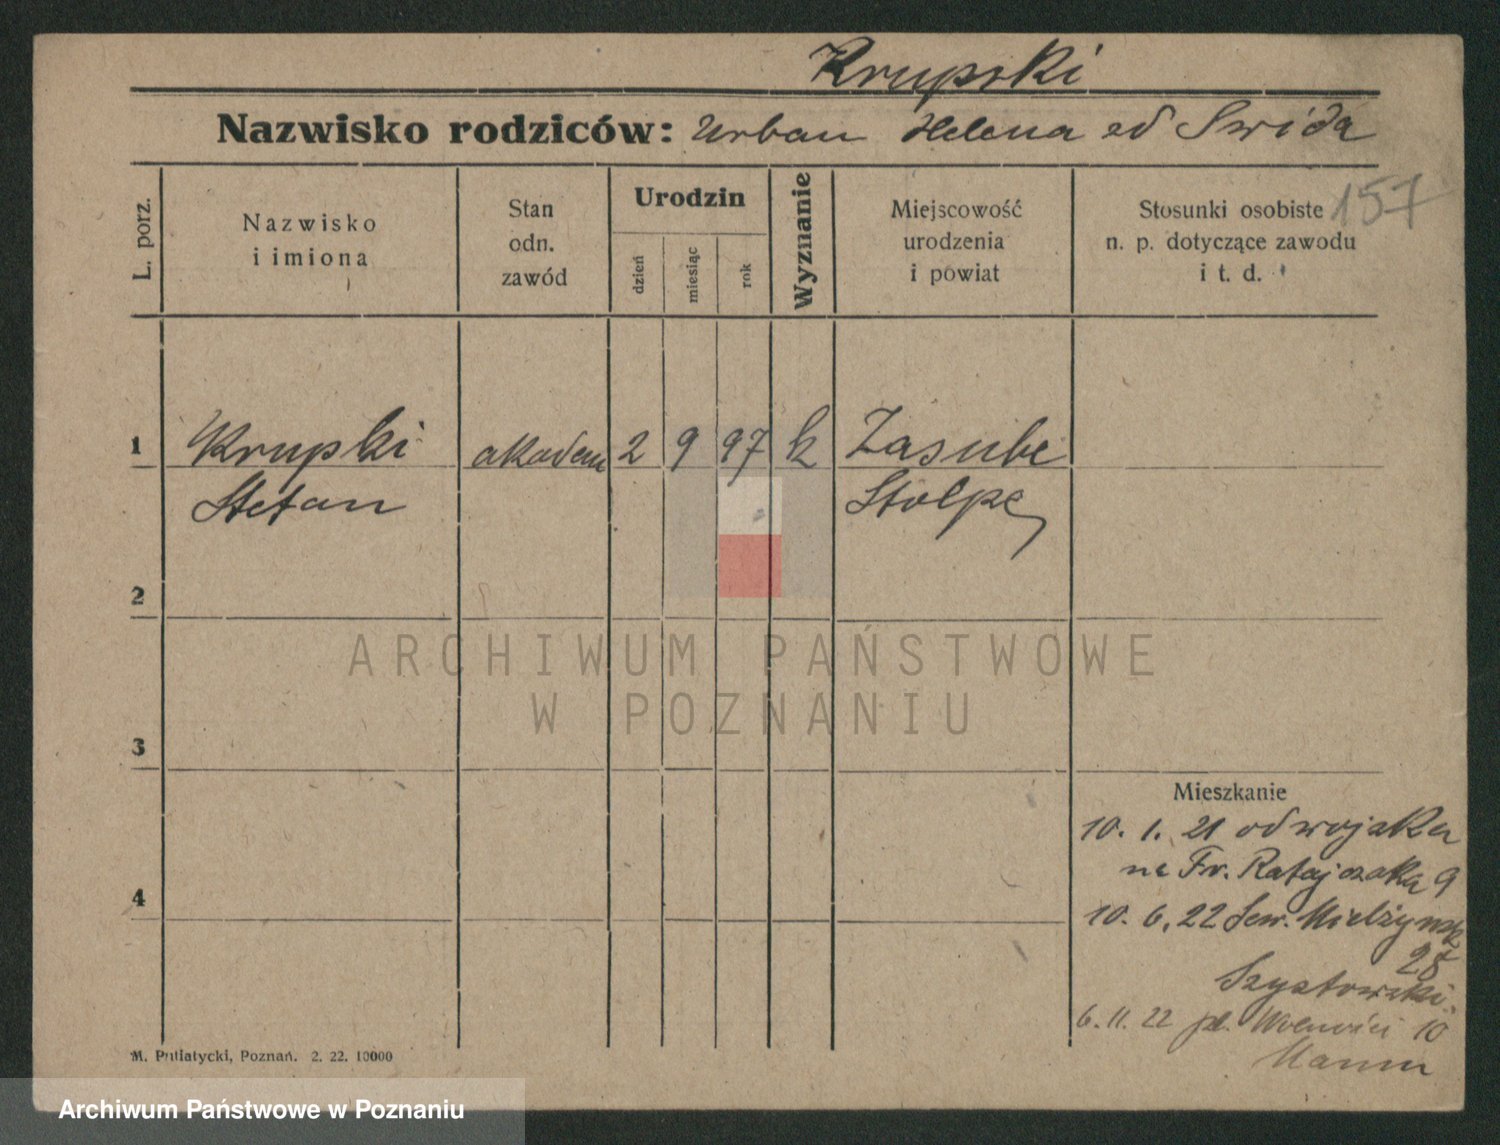 Krupski
Nazwisko rodziców: Urban Helena od Swida
157
L. porz.
Nazwisko
i imiona
Stan
odn.
zawód
Urodzin
dzień
miesiąc
rok
Wyznanie
Miejscowość
urodzenia
i powiat
Stosunki osobiste
n. p. dotyczące zawodu
i t. d.
1 Krupski akadem 2 9 97 k
Stefan Stolpe
2
ARCHIWUM PAŃSTWOWE
W POZNANIU
3
Mieszkanie
10. 1. 21 od wojska
na Fr. Ratajczaka 9
4
10. 6. 22 Sew. Mielżynsk
28
6. 11. 22 pl. Wolności 10
M. Putiatycki, Poznań. 2. 22. 10000
Archiwum Państwowe w Poznaniu